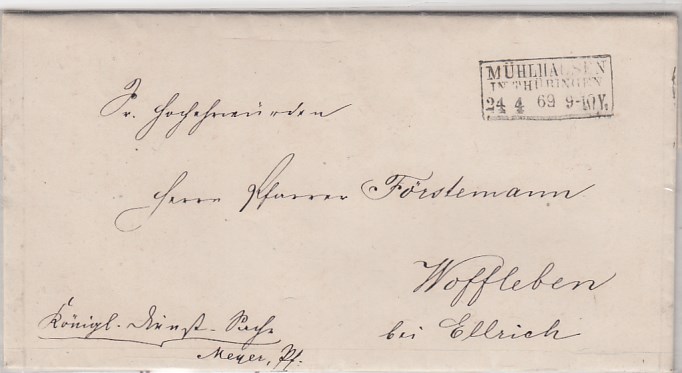 MÜHLHAUSEN
IN THÜRINGEN
24 4 69 9-10 V.
Sr. Hochehrwürden
Herrn Pfarrer Förstemann
Woffleben
bei Ellrich
Königl. Dienst-Sache
Meyer, Pf.